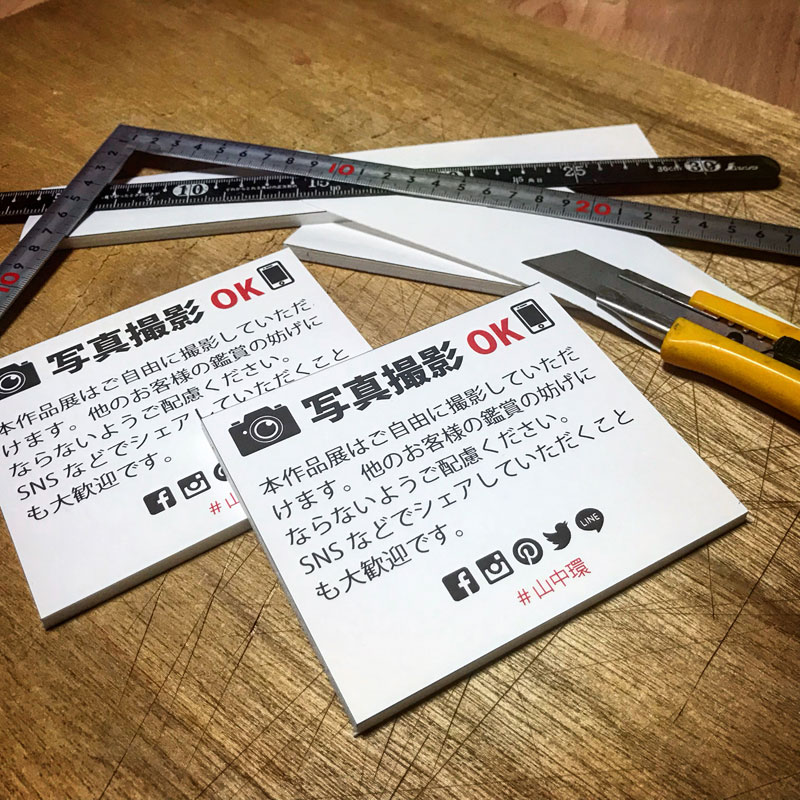 写真撮影 OK
本作品展はご自由に撮影していただ
けます。他のお客様の鑑賞の妨げに
ならないようご配慮ください。
SNS などでシェアしていただくこと
も大歓迎です。
#山
写真撮影 OK
本作品展はご自由に撮影していただ
けます。他のお客様の鑑賞の妨げに
ならないようご配慮ください。
SNS などでシェアしていただくこと
も大歓迎です。
LINE
#山中環
1 2 3 4 5 6 7 8 9 10 1 2 3 4 5 6 7 8 9 20 1 2 3 4 5 6 7
8 9 10
10 15 25 30